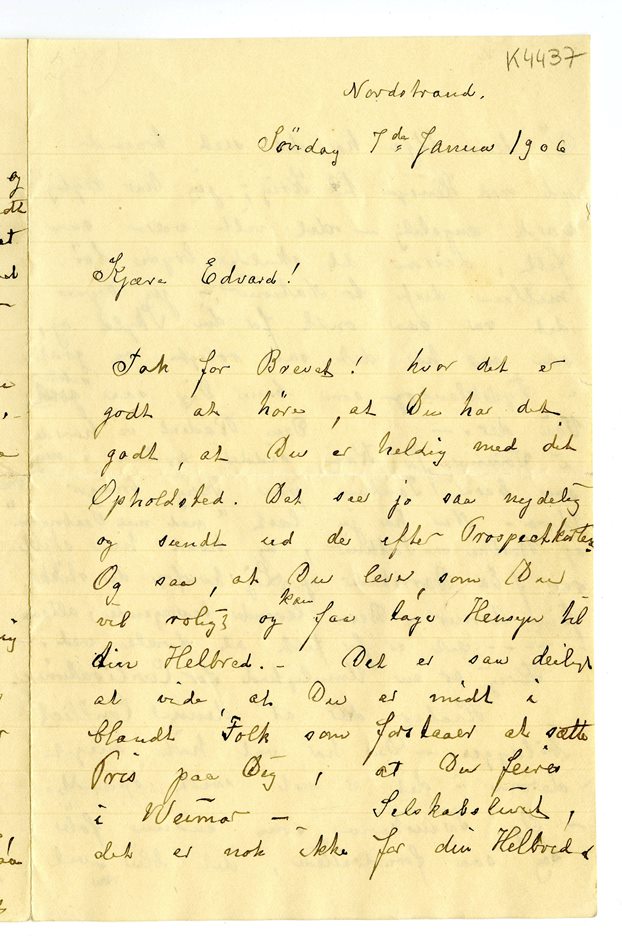 K4437
Nordstrand.
Söndag 7de Januar 1906
Kjære Edvard!
Tak for Brevet! hvor det er
godt at höre, at Du har det
godt, at Du er heldig med dit
Opholdsted. Det seer jo saa nydelig
og sundt ud de efter Prospectkorten
Og saa, at Du lever, som Du
vil rolig og kan faa tage Hensyn til
din Helbred. – Det er saa deiligt
at vide, at Du er midt i
blandt Folk som forstaaer at sætte
Pris paa Dig, at Du feires
i Weimar – Selskabslivet,
det er nok ikke for din Helbred